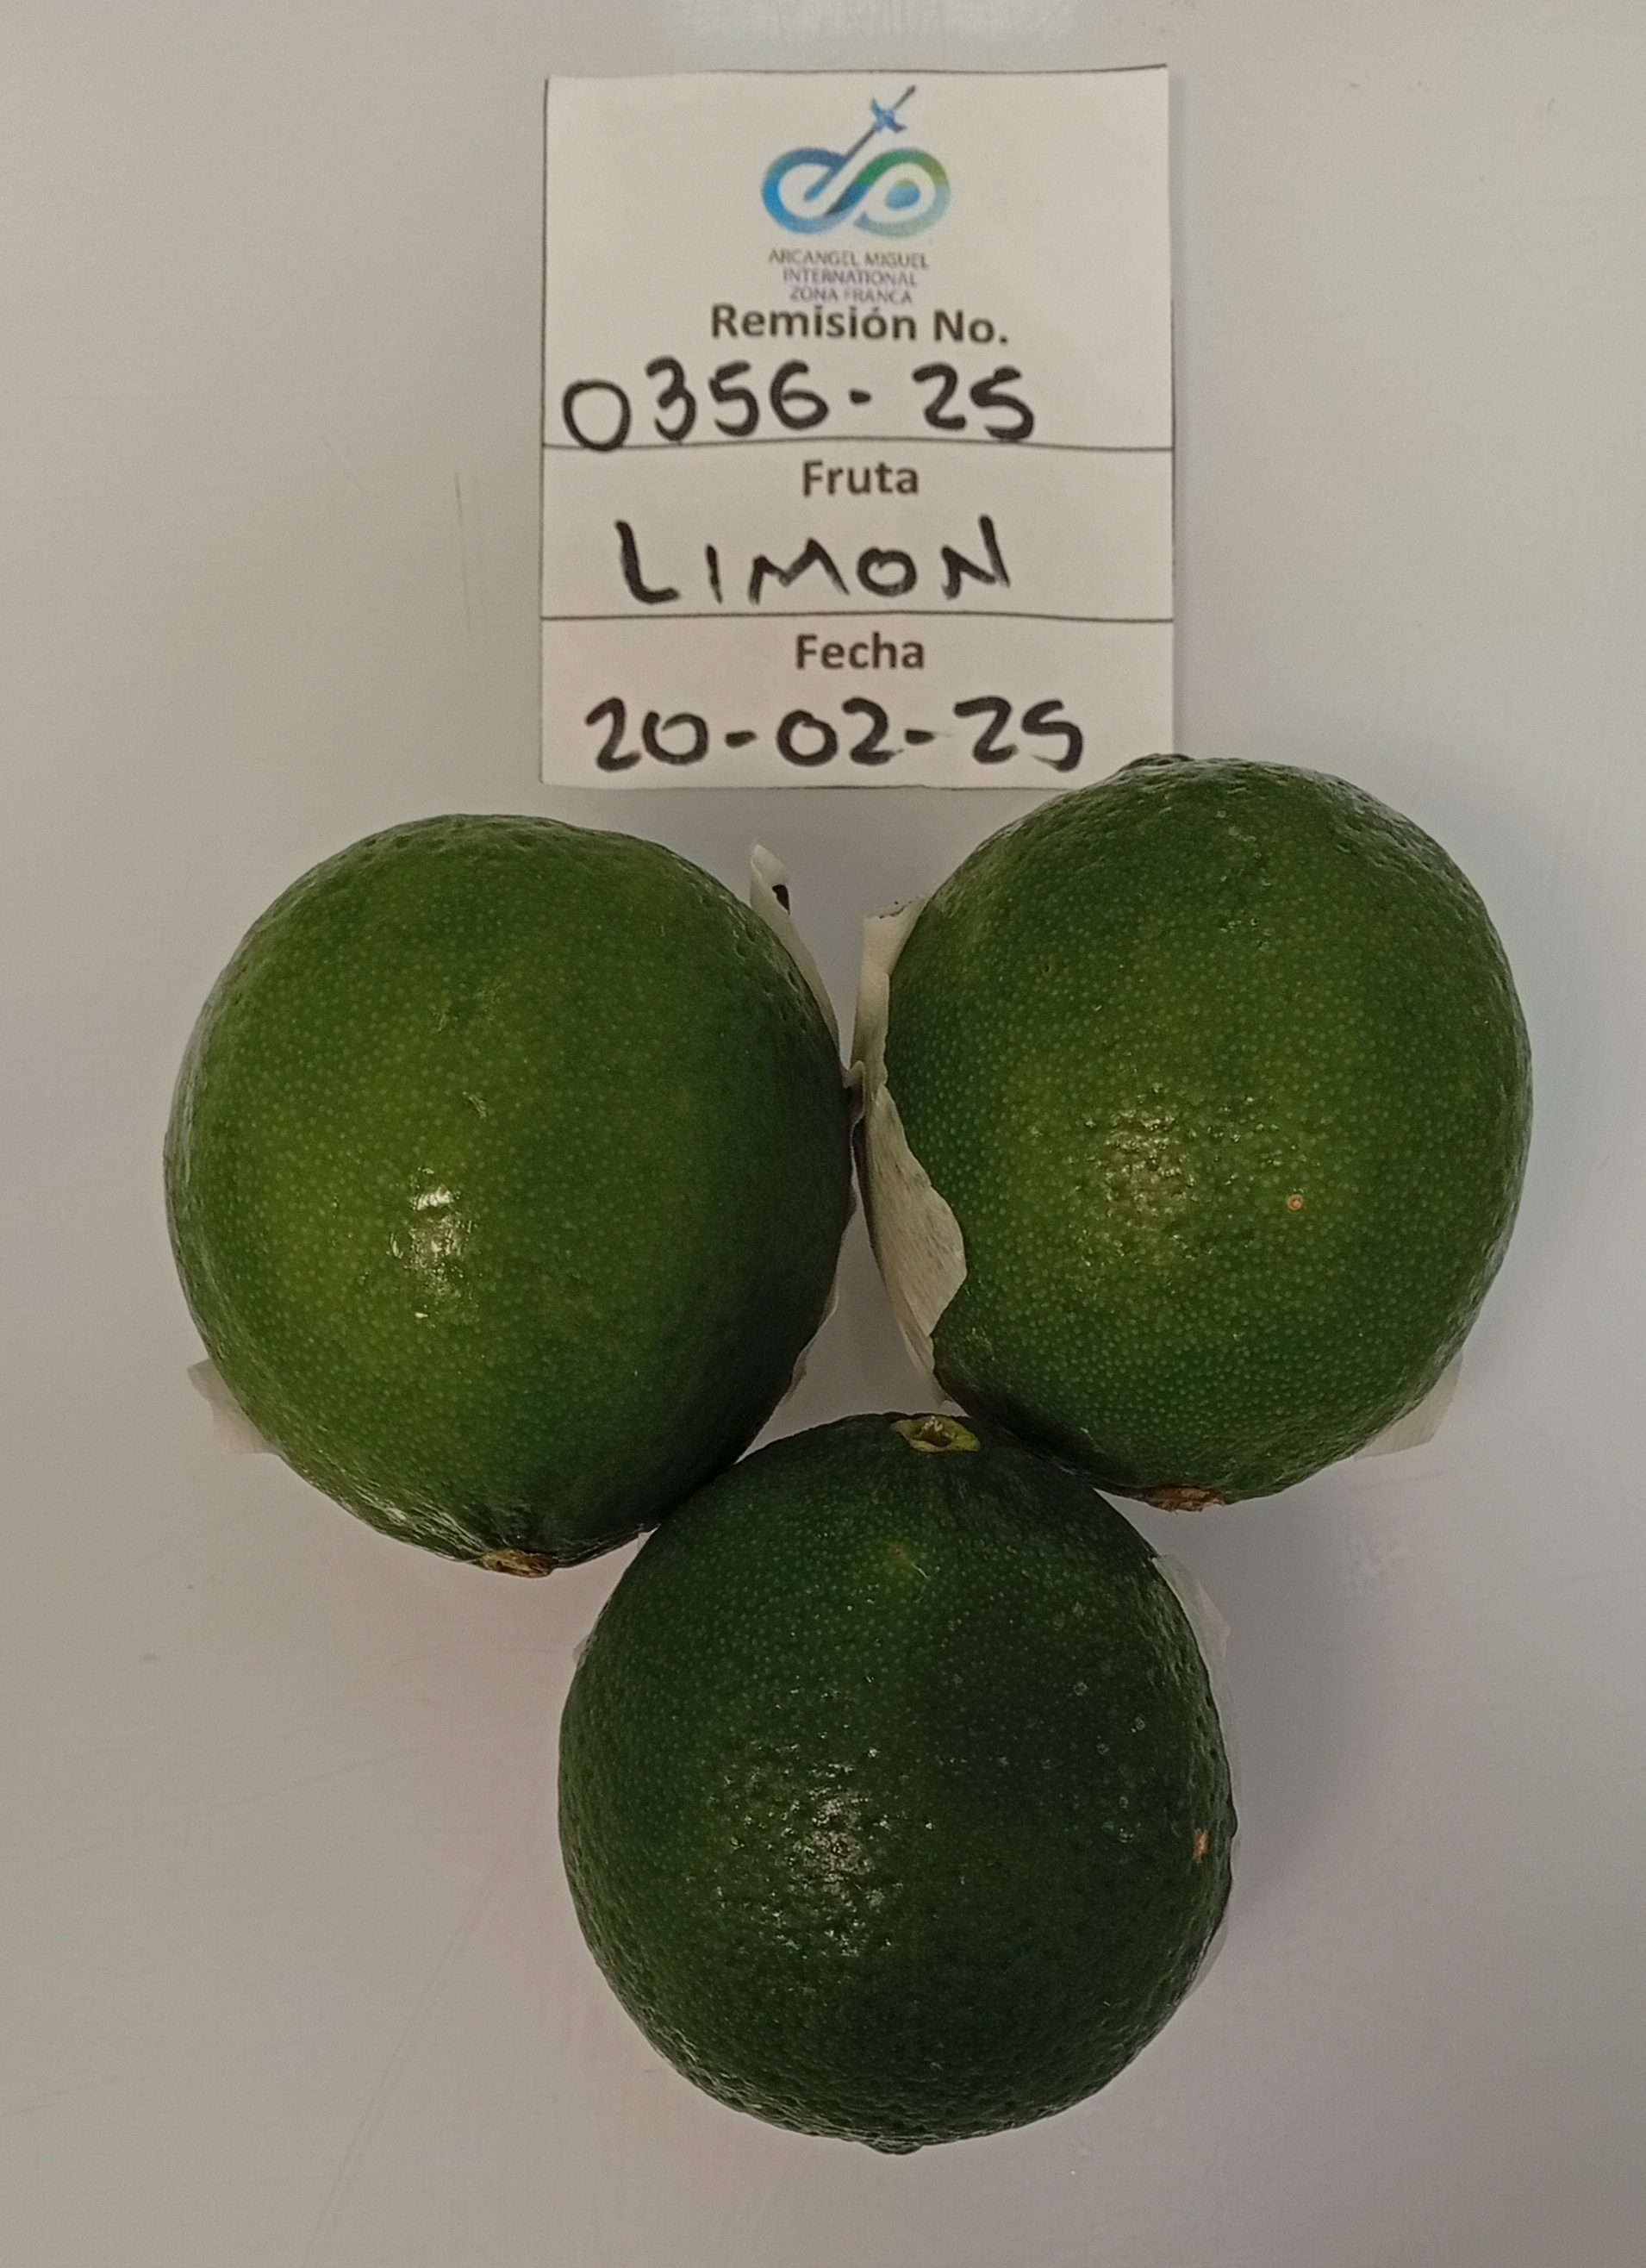 ARCANGEL MIGUEL
INTERNATIONAL
ZONA FRANCA
Remisión No.
0356-25
Fruta
LIMON
Fecha
20-02-25